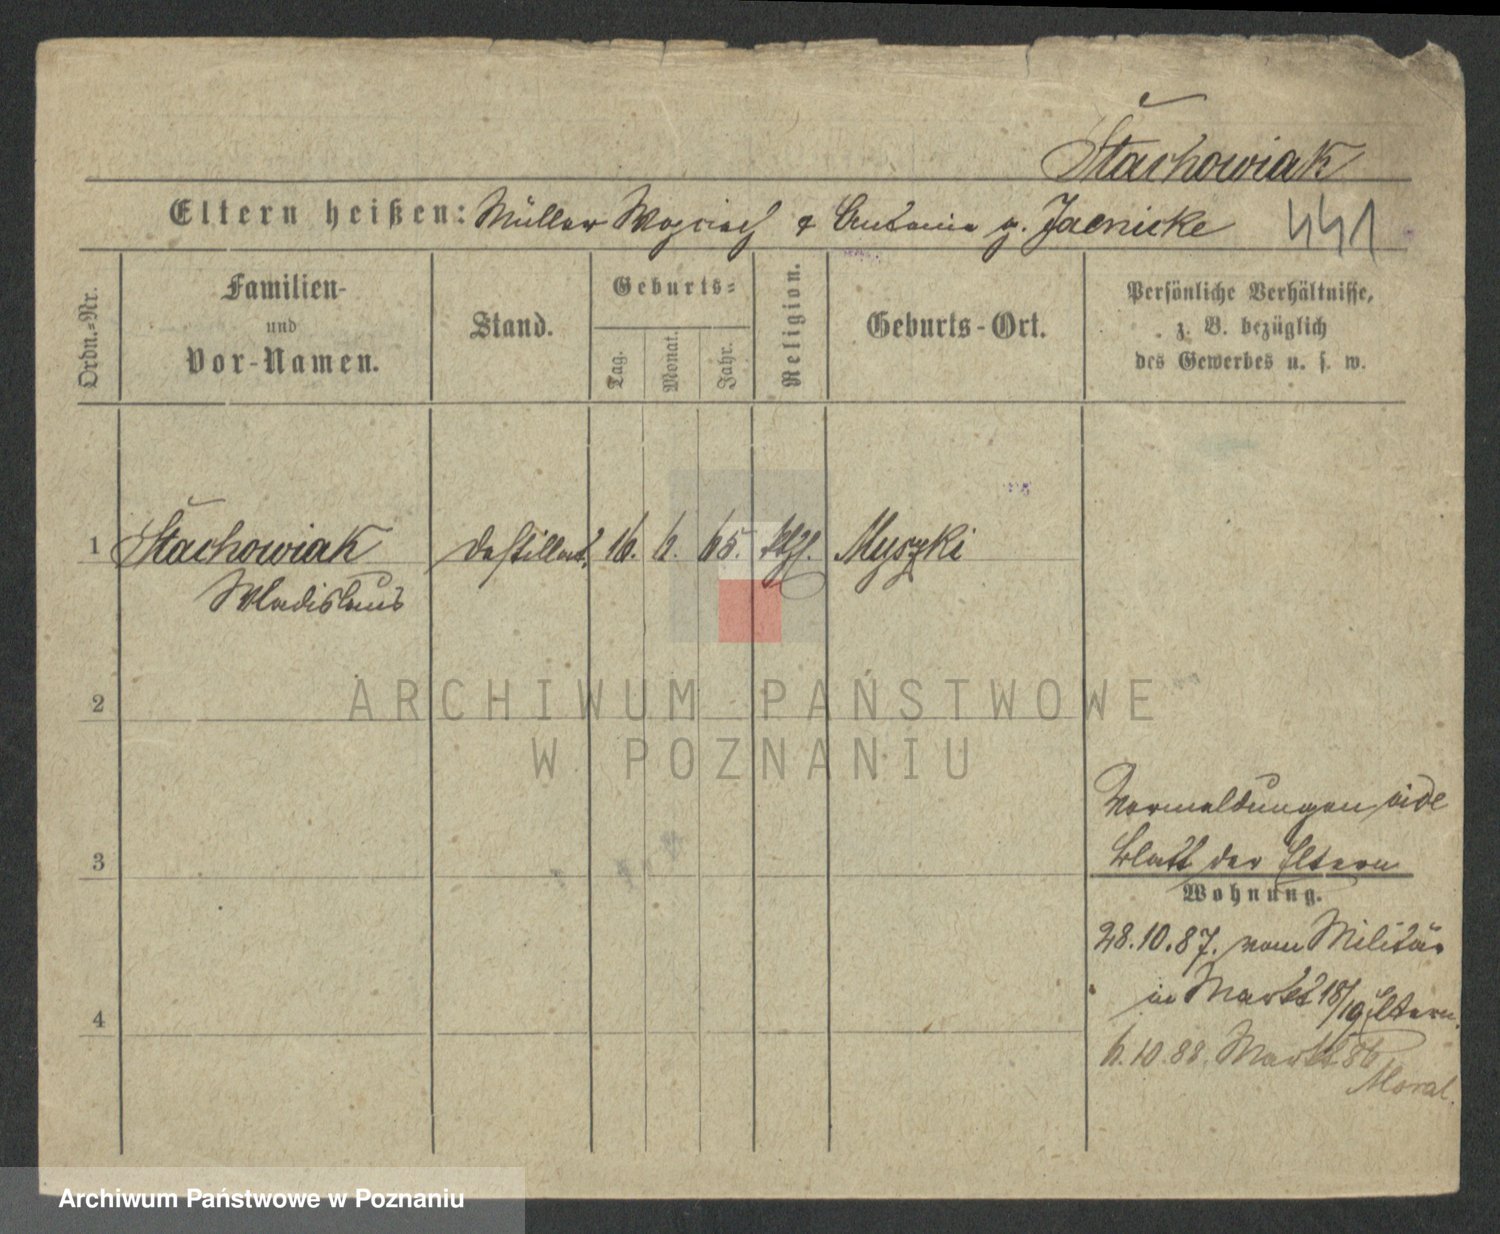 Stachowiak
Eltern heißen: Müller Wojciech & Antonie g. Jaenicke
441
Ordn.=Nr.
Familien-
und
Vor-Namen.
Stand.
Geburts=
Tag.
Monat.
Jahr.
Religion.
Geburts-Ort.
Persönliche Verhältnisse,
z. B. bezüglich
des Gewerbes u. s. w.
1 Stachowiak Destillat. 16. 6. 65. ktl. Myszki
Wladislaus
2
ARCHIWUM PAŃSTWOWE
W POZNANIU
Vormeldungen vide
3 Blatt der Eltern
Wohnung.
28.10.87. vom Militär
in Markt 18/19 Eltern.
4
6.10.88. Markt 86
Moral.
Archiwum Państwowe w Poznaniu